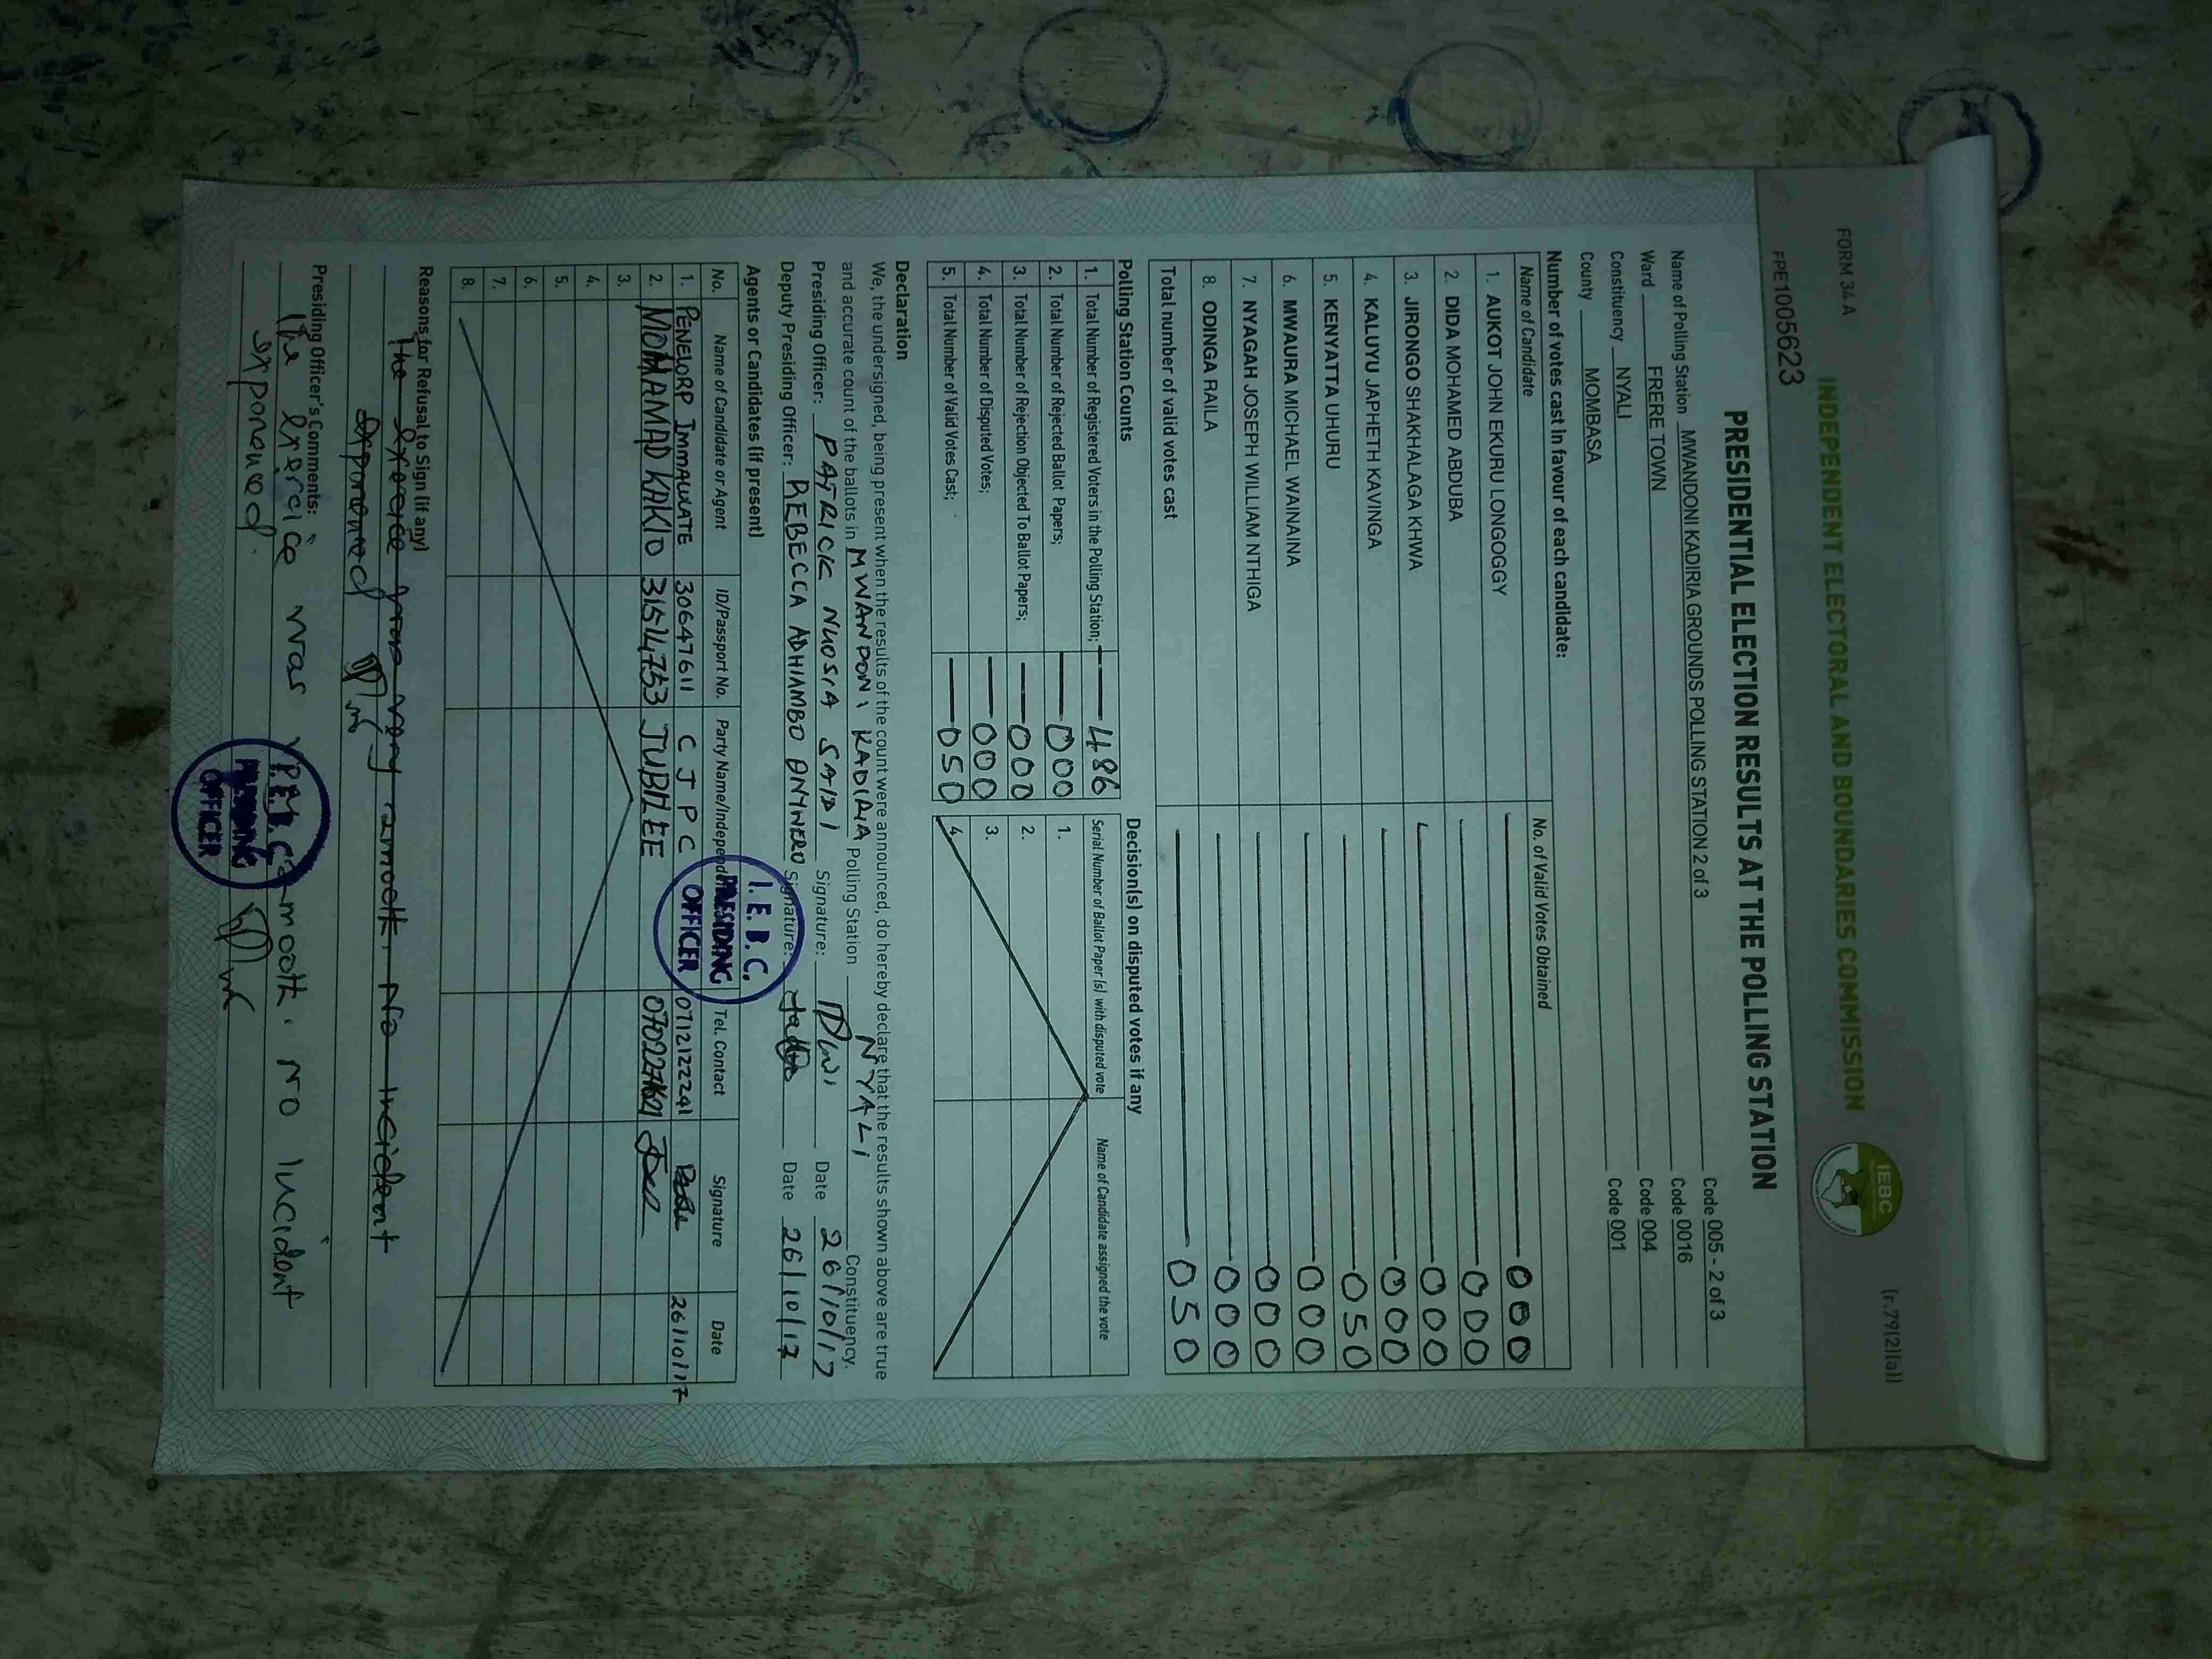 FORM 34A
(r.79(2)(a))
INDEPENDENT ELECTORAL AND BOUNDARIES COMMISSION
IEBC
FPE1005623
PRESIDENTIAL ELECTION RESULTS AT THE POLLING STATION
Name of Polling Station MWANDONI KADIRIA GROUNDS POLLING STATION 2 of 3 Code 005 - 2 of 3
Ward FRERE TOWN Code 0016
Constituency NYALI Code 004
County MOMBASA Code 001
Number of votes cast in favour of each candidate:
Name of Candidate No. of Valid Votes Obtained
1. AUKOT JOHN EKURU LONGOGGY 000
2. DIDA MOHAMED ABDUBA 000
3. JIRONGO SHAKHALAGA KHWA 000
4. KALUYU JAPHETH KAVINGA 000
5. KENYATTA UHURU 050
6. MWAURA MICHAEL WAINAINA 000
7. NYAGAH JOSEPH WILLIAM NTHIGA 000
8. ODINGA RAILA 000
Total number of valid votes cast 050
Polling Station Counts
1. Total Number of Registered Voters in the Polling Station; 486
2. Total Number of Rejected Ballot Papers; 000
3. Total Number of Rejection Objected To Ballot Papers; 000
4. Total Number of Disputed Votes; 000
5. Total Number of Valid Votes Cast; 050
Decision(s) on disputed votes if any
Serial Number of Ballot Paper (s) with disputed vote Name of Candidate assigned the vote
1.
2.
3.
4.
Declaration
We, the undersigned, being present when the results of the count were announced, do hereby declare that the results shown above are true
and accurate count of the ballots in MWANDONI KADIRIA Polling Station NYALI Constituency.
Presiding Officer: PATRICK SAIDI Signature: Date 26/10/17
Deputy Presiding Officer: REBECCA ADHIAMBO ONYNERO Signature: Date 26/10/17
Agents or Candidates (if present)
No. Name of Candidate or Agent ID/Passport No. Party Name/Independent Tel. Contact Signature Date
1. PENELORP IMMAQULATE 30647611 C J P C 0712122241 26/10/17
2. MOHAMAD KAKIO 31514753 JUBILEE
3.
4.
5.
6.
7.
8.
I.E.B.C.
PRESIDING
OFFICER
Reasons for Refusal to Sign (if any)
The exercice was very smooth. No incident
exponened
Presiding Officer's Comments:
The exercice was very smooth. no incident
exponened.
I.E.B.C.
PRESIDING
OFFICER